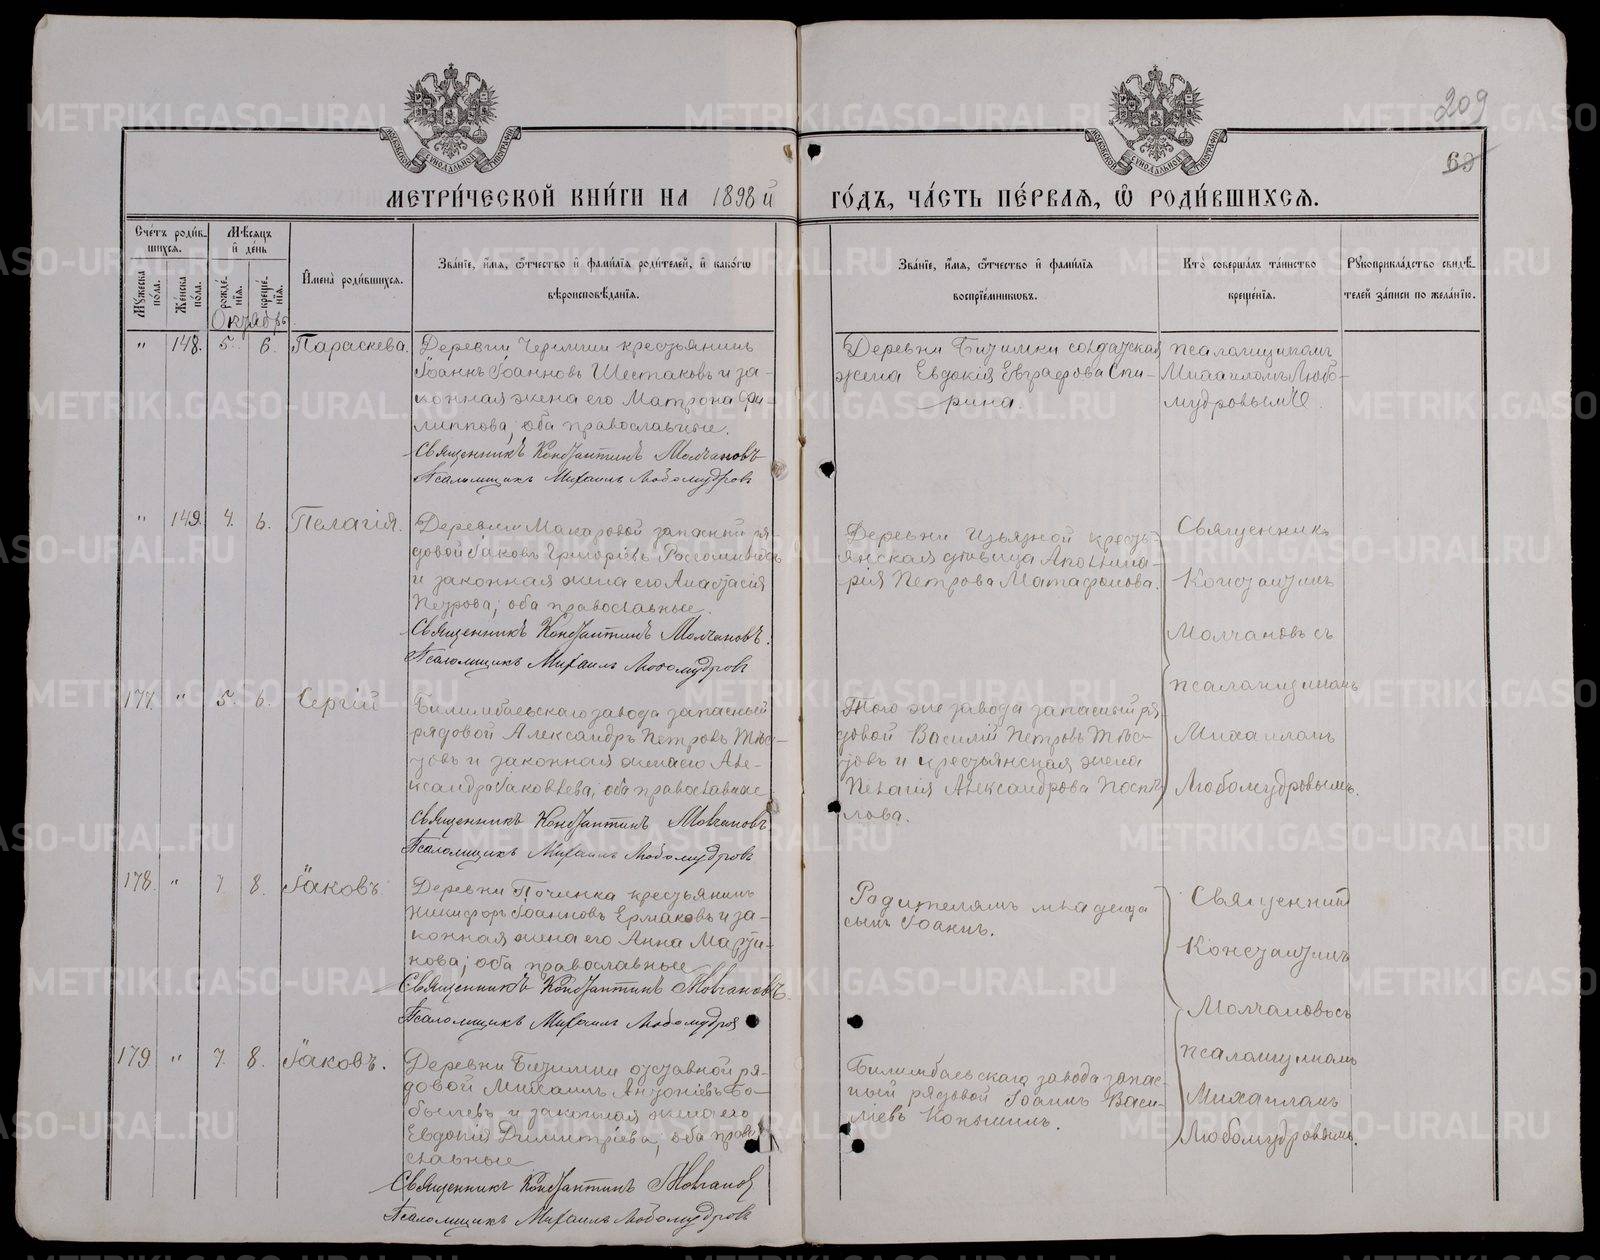 209
МЕТРИ́ЧЕСКОЙ КНИ́ГИ НА 1898й ГО́ДЪ, ЧА́СТЬ ПЕ́РВАЯ, Ѡ РОДИ́ВШИХСЯ.
Сче́тъ роди́в-
шихся.
Му́жеска по́ла.
Же́нска по́ла.
Мѣ́сяцъ
и де́нь
рожде́нія.
креще́нія.
Октябрь
Имена̀ роди́вшихся.
Зва́ніе, и́мя, ѻ́тчество и фами́лія роди́телей, и како́гѡ
вѣроисповѣ́данія.
Зва́ніе, и́мя, ѻ́тчество и фами́лія
воспріе́мникѡвъ.
Кто̀ соверша́лъ та́инство
креще́нія.
Рꙋкоприкла́дство свидѣ́-
телей за́писи по жела́нію.
" 148. 5. 6. Параскева.
Деревни Черемши крестьянинъ
Іоаннъ Іоанновъ Шестаковъ и за-
конная жена его Матрона Фи-
липпова, оба православные.
Священникъ Константинъ Молчановъ
Псаломщикъ Михаилъ Любомудровъ
Деревни Битимки солдатская
жена Евдокія Евграфова Спи-
рина.
псаломщикомъ
Михаиломъ Любо-
мудровымъ
" 149. 4. 6. Пелагія.
Деревни Макаровой запасный ря-
довой Іаковъ Григоріевъ
и законная жена его Анастасія
Петрова; оба православные.
Священникъ Константинъ Молчановъ.
Псаломщикъ Михаилъ Любомудровъ
Деревни кресть-
янская дѣвица Аполлина-
рія Петрова Матафонова.
Священникъ
Константинъ
Молчановъ съ
псаломщикомъ
Михаиломъ
Любомудровымъ.
177. " 5. 6. Сергій
Билимбаевскаго завода запасный
рядовой Александръ Петровъ
и законная жена его Але-
ксандра Іаковлева, оба православные
Священникъ Константинъ Молчановъ
Псаломщикъ Михаилъ Любомудровъ
Того же завода запасный ря-
довой Василій Петровъ
и крестьянская жена
Пелагія Александрова Поспѣ-
лова.
178. " 7. 8. Іаковъ
Деревни Починка крестьянинъ
Никифоръ Іоанновъ Ермаковъ и за-
конная жена его Анна Марти-
нова; оба православные
Священникъ Константинъ Молчановъ.
Псаломщикъ Михаилъ Любомудровъ
Родителямъ младенца
сынъ Іоаннъ.
Священник
Константинъ
Молчановъ съ
псаломщикомъ
Михаиломъ
Любомудровымъ.
179 " 7. 8. Іаковъ.
Деревни Битимки отставной ря-
довой Михаилъ Антоніевъ Бо-
былевъ и законная жена его
Евдокія Димитріева; оба право-
славные
Священникъ Константинъ Молчановъ
Псаломщикъ Михаилъ Любомудровъ
Билимбаевскаго завода запас-
ный рядовой Іоаннъ Васи-
ліевъ Коньшинъ.
METRIKI.GASO-URAL.RU